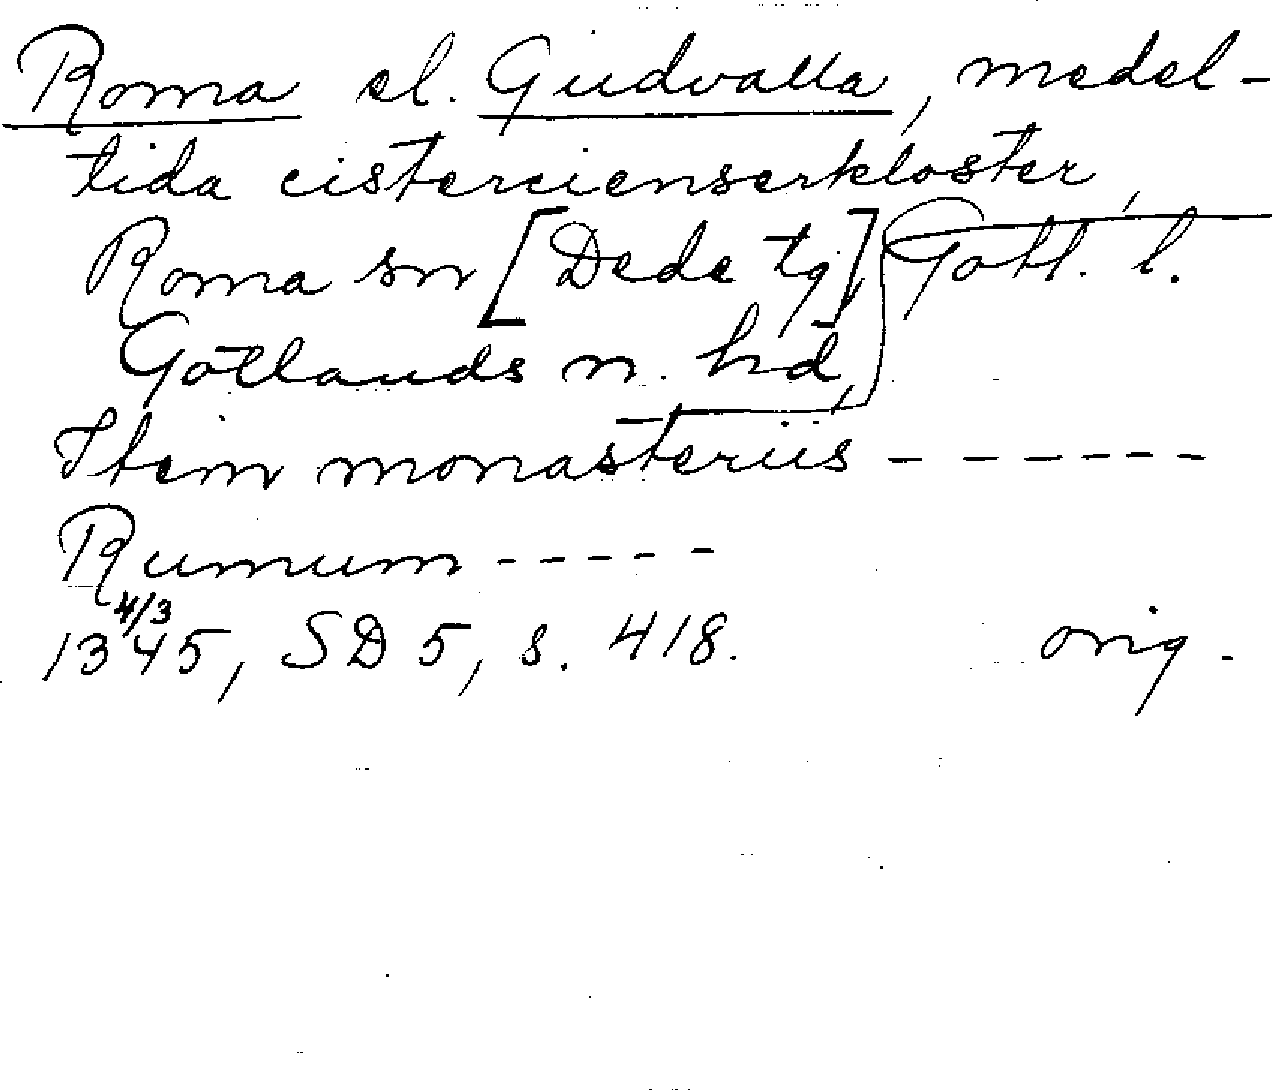 Roma el. Gudvalla, medel-
tida cistercienserkloster,
Roma sn [Dede tg] Gotl. l.
Gotlands n. hd,
Item monasteriis - - - - - -
Rumum - - - - -
4/3
1345, SD 5, s. 418. orig.